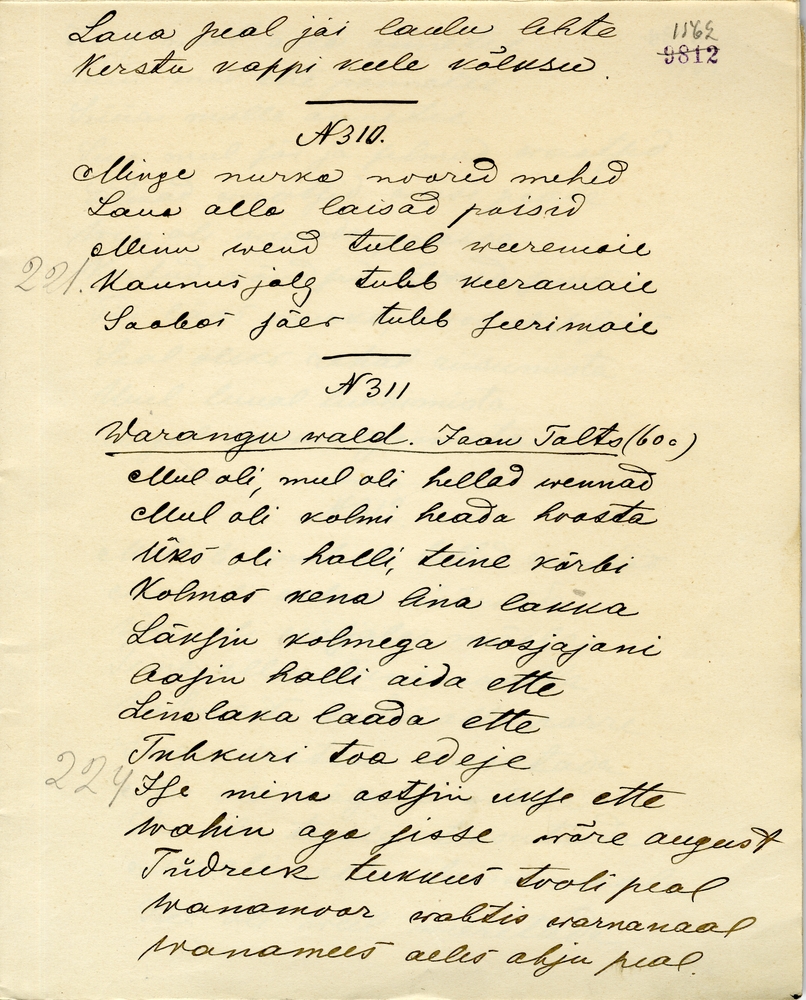 Laua peal jäi laulu lehte
1162
9812
Kerstu kappi keele kõlksu.
N 310.
Minge nurka noored mehed
Laua alla laisad poisid
Minu wend tuleb weeremaie
221.
Kaunusjalg tuleb keeramaie
Saabas säer tuleb seerimaie
N 311
Warangu wald. Jaan Talts (60a)
Mul oli, mul oli hellad wennad
Mul oli kolmi heada hoosta
Üks oli halli, teine kõrbi
Kolmas kena lina lakka
Läksin kolmega kosjajani
Aasin halli aida ette
Linalaka laada ette
Tuhkuri toa edeje
224
Ise mina astsin ukse ette
Wahin aga sisse wäre august
Tüdruk tukkus tooli peal
Wanamoor wahtis warnanaal
Wanamees aeles ahju peal.